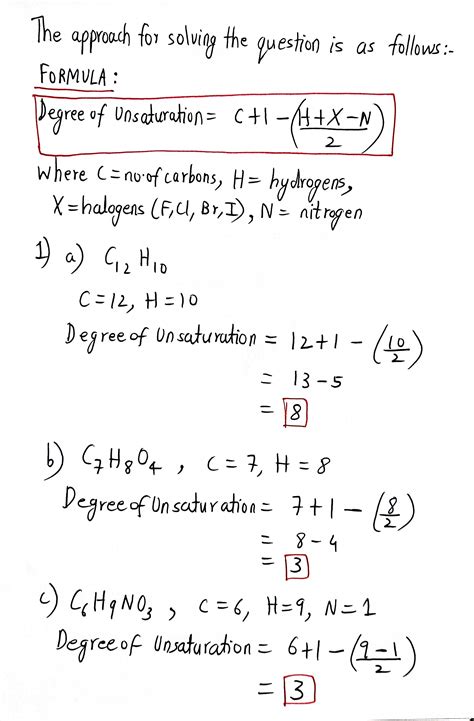 The approach for solving the question is as follows:-
FORMULA:
Degree of Unsaturation = C+1-(H+X-N/2)
where C=no.of carbons, H= hydrogens,
X=halogens (F,Cl, Br,I), N= nitrogen
1) a) C12 H10
C=12, H=10
Degree of Unsaturation = 12+1-(10/2)
= 13-5
= 8
b) C7H8O4, C=7, H=8
Degree of Unsaturation = 7+1-(8/2)
= 8-4
= 3
c) C6H9NO3, C=6, H=9, N=1
Degree of Unsaturation = 6+1-(9-1/2)
= 3